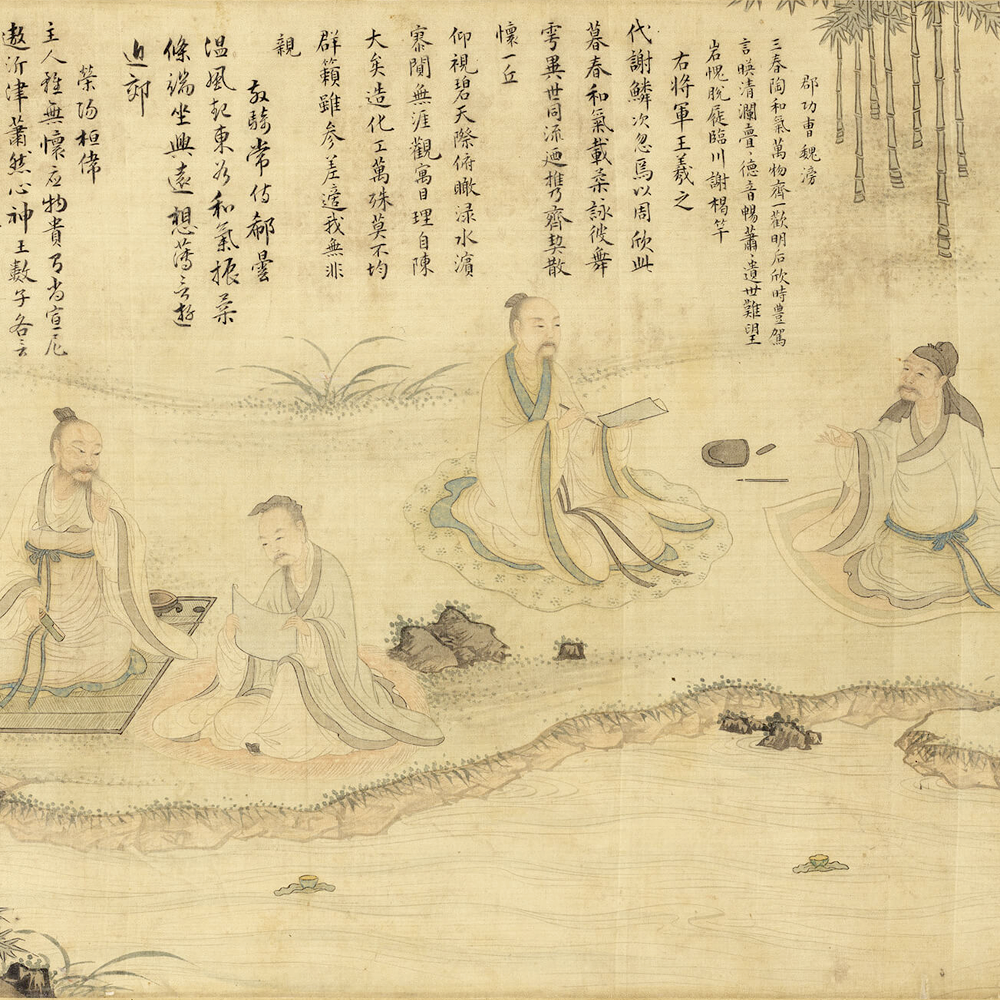 郡功曹魏滂
三春陶和氣萬物齊一歡明后欣時豊駕
言暎清瀾亹〻德音暢蕭〻遺世難望
岩愧脫屣臨川謝楬竿
右將軍王羲之
代謝鱗次忽焉以周欣此
暮春和氣載柔詠彼舞
雩異世同流迺携齊契散
懷一丘
仰視碧天際俯瞰淥水濱
寥闃無涯觀寓目理自陳
大矣造化工萬殊莫不均
群籟雖參差適我無非
親
散騎常侍郗曇
温風起東谷和氣振柔
條端坐興遠想薄言遊
近郊
滎陽桓偉
主人雖無懷應物貴有尚宣尼
遨沂津蕭然心神王數子各言